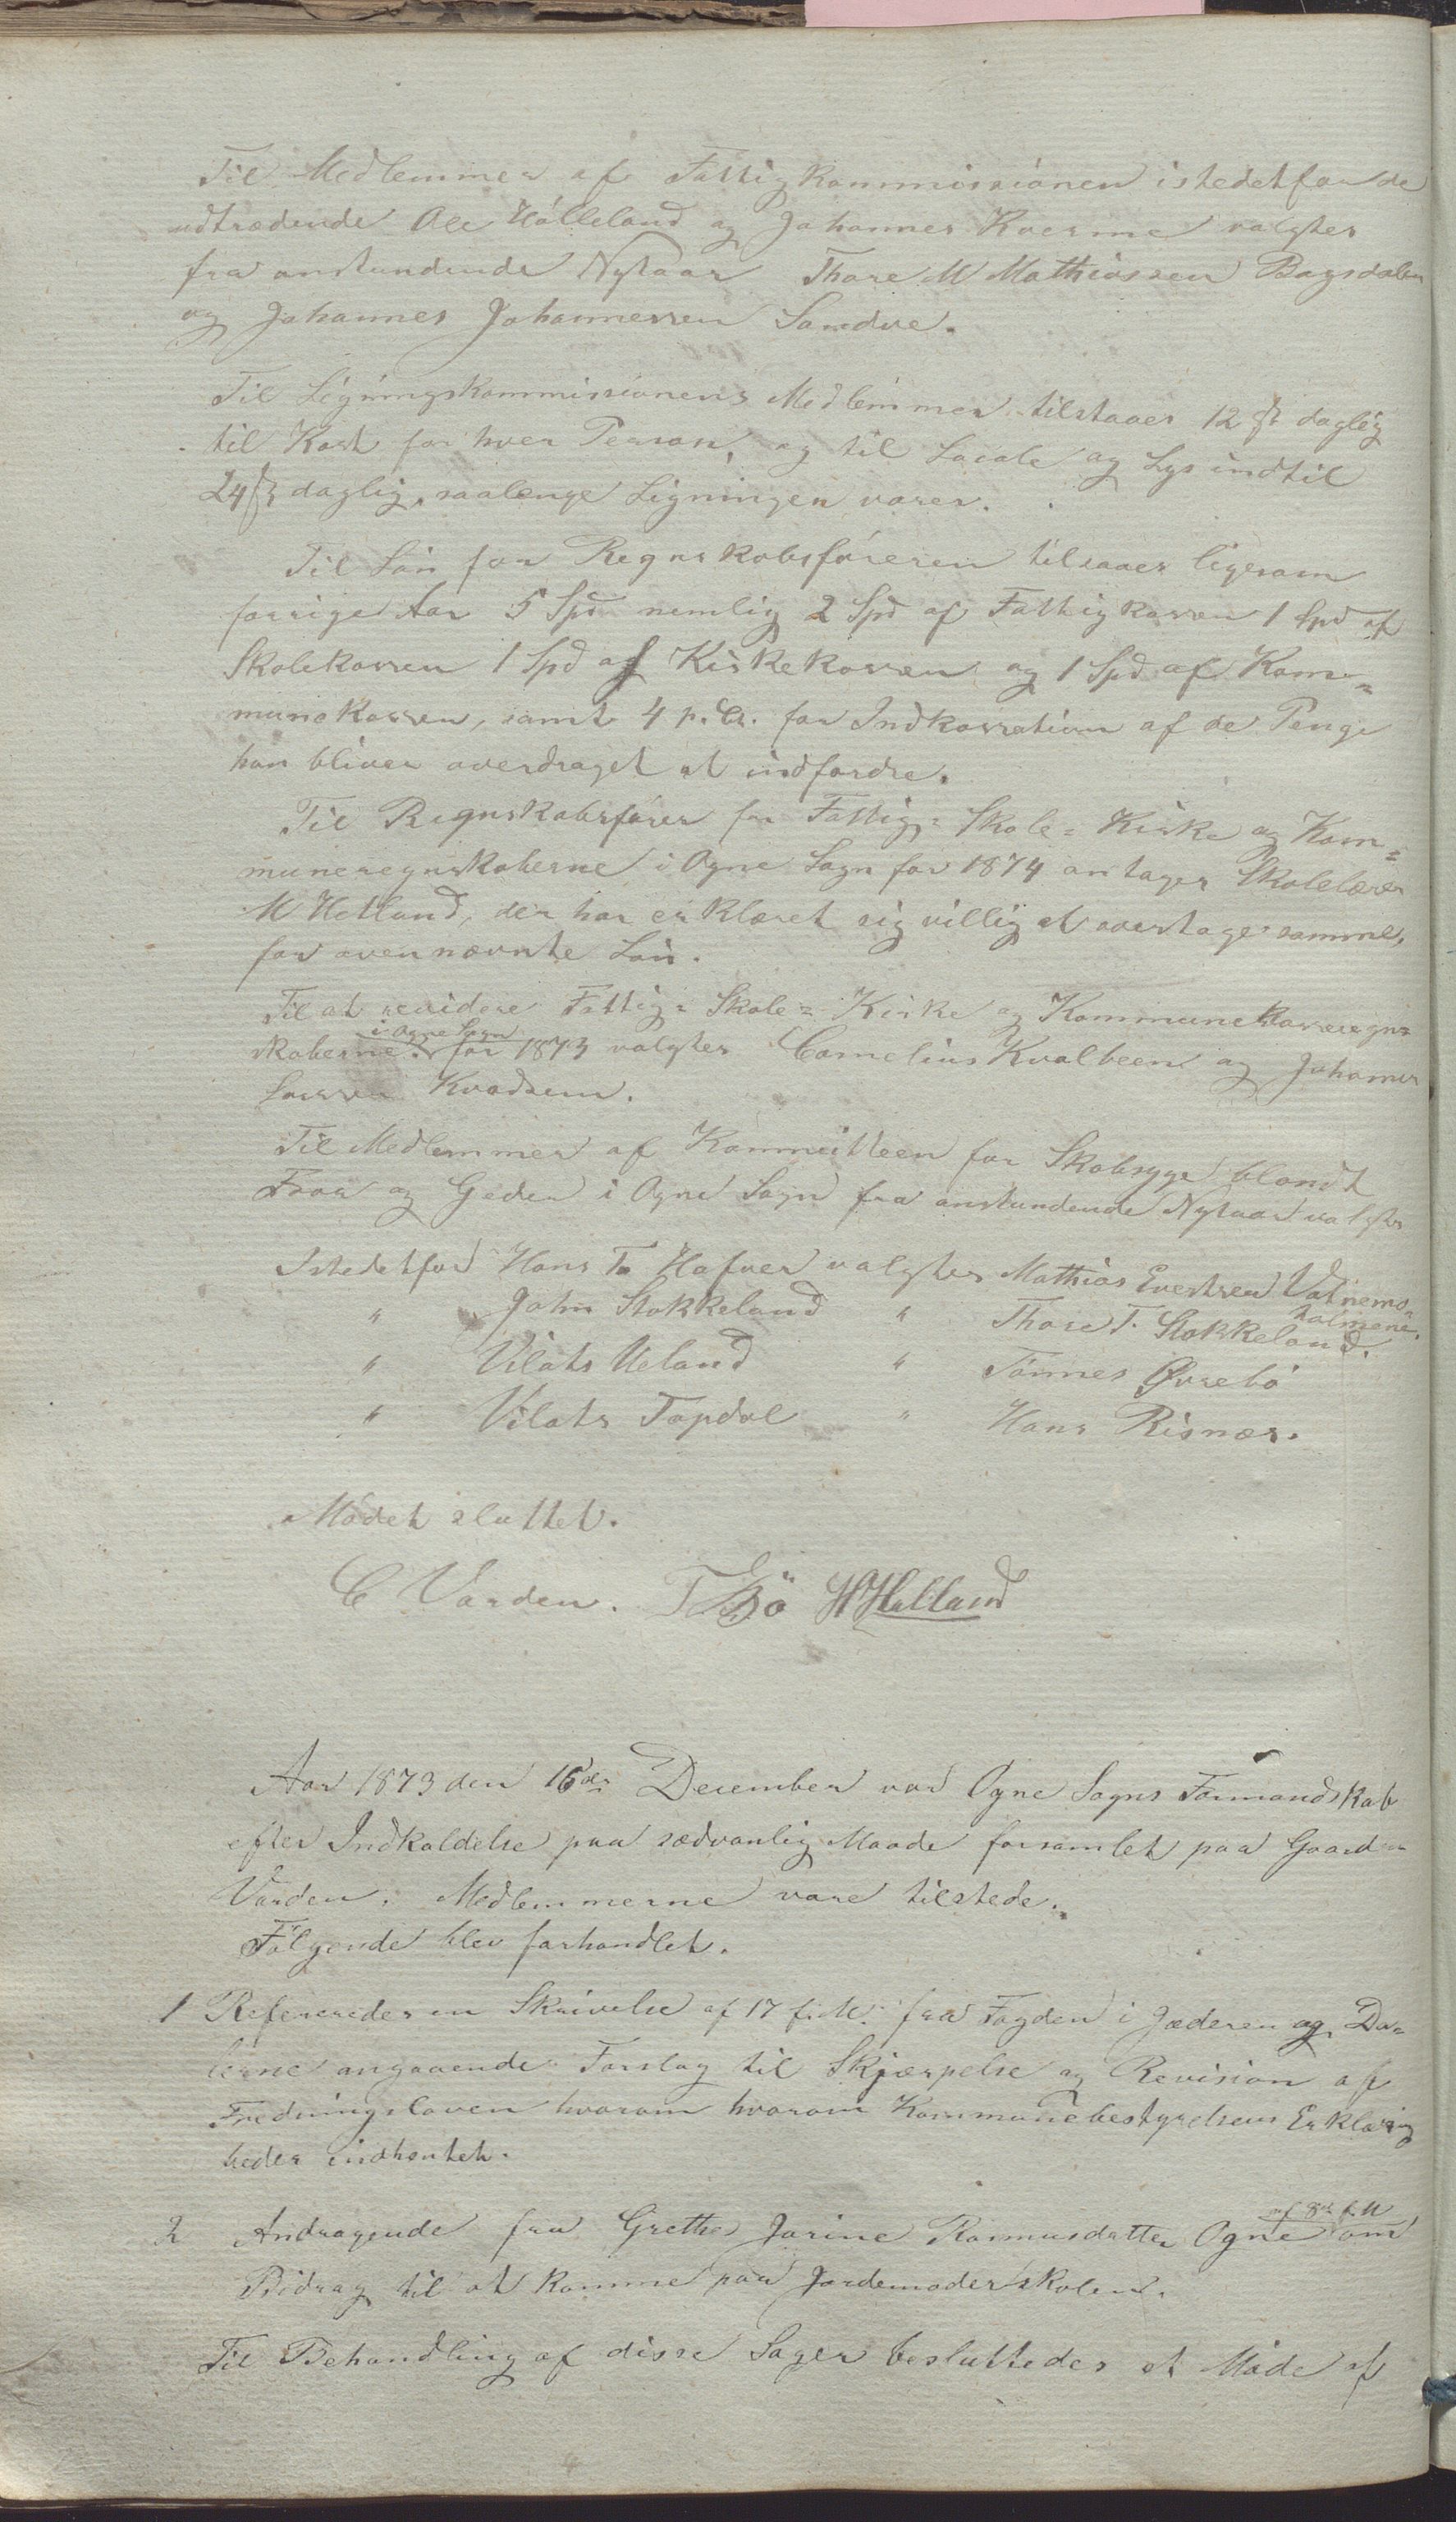 Til Medlemmer af Fattigkommissionen istedetfor de
udtrædende Ole Hölleland og Johannes Kverme valgtes
fra anstundende Nytaar Thore M Mathiassen Bagsdalen
og Johannes Johannessen Sandve.
Til Ligningskommissionens Medlemmer tilstaaes 12 ß daglig
til Kost for hver Person, og til Locale og Lys indtil
24 ß daglig, saalænge Ligningen varer.
Til Lön for Regnskabsföreren tilsaaes ligesom
forrige Aar 5 Spd nemlig 2 Spd af Fattigkassen 1 Spd af
Skolekassen 1 Spd af Kirkekassen og 1 Spd af Kom=
munekassen, samt 4 p. Ct. for Indkassation af de Penge
han bliver overdraget at indfordre.
Til Regnskabsförer for Fattig= Skole= Kirke og Kom=
muneregnskaberne i Ogne Sogn for 1874 antages Skolelærer
M Hetland, der har erklæret sig villig at overtage samme,
for ovennævnte Lön.
Til at revidere Fattig= Skole= Kirke og Kommunekasseregn=
skaberne i Ogne Sogn for 1873 valgtes Cornelius Kvalbeen og Johannes
Larssen Kvadsem.
Til Medlemmer af Kommitteen for Skabsyge blandt
Faar og Geder i Ogne Sogn fra anstundende Nytaar valgtes
Istedetfor Hans T. Hafver valgtes Mathias Evertsen Vatnemo=
holmene.
" John Stokkeland " Thore T. Stokkeland.
" Vilats Ueland " Tönnes Øvrebö
" Vilats Tapdal " Hans Risnæs.
Mödet sluttet.
C Varden. T Bö H Helland
Aar 1873 den 16de December var Ogne Sogns Formandskab
efter Indkaldelse paa sædvanlig Maade forsamlet paa Gaarden
Varden. Medlemmerne vare tilstede.
Fölgende blev forhandlet.
1 Refereredes en Skrivelse af 17 f. M. fra Fogden i Jæderen og Da=
lerne angaaende Forslag til Skjærpelse og Revision af
Fredningsloven hvorom hvorom Kommunebestyrelsens Erklæring
bedes indhentet.
2 Andragende fra Grethe Jorine Rasmusdatter Ogne af 8de f. M om
Bidrag til at komme paa Jordemoderskolen.
Til Behandling af disse Sager besluttedes et Möde af